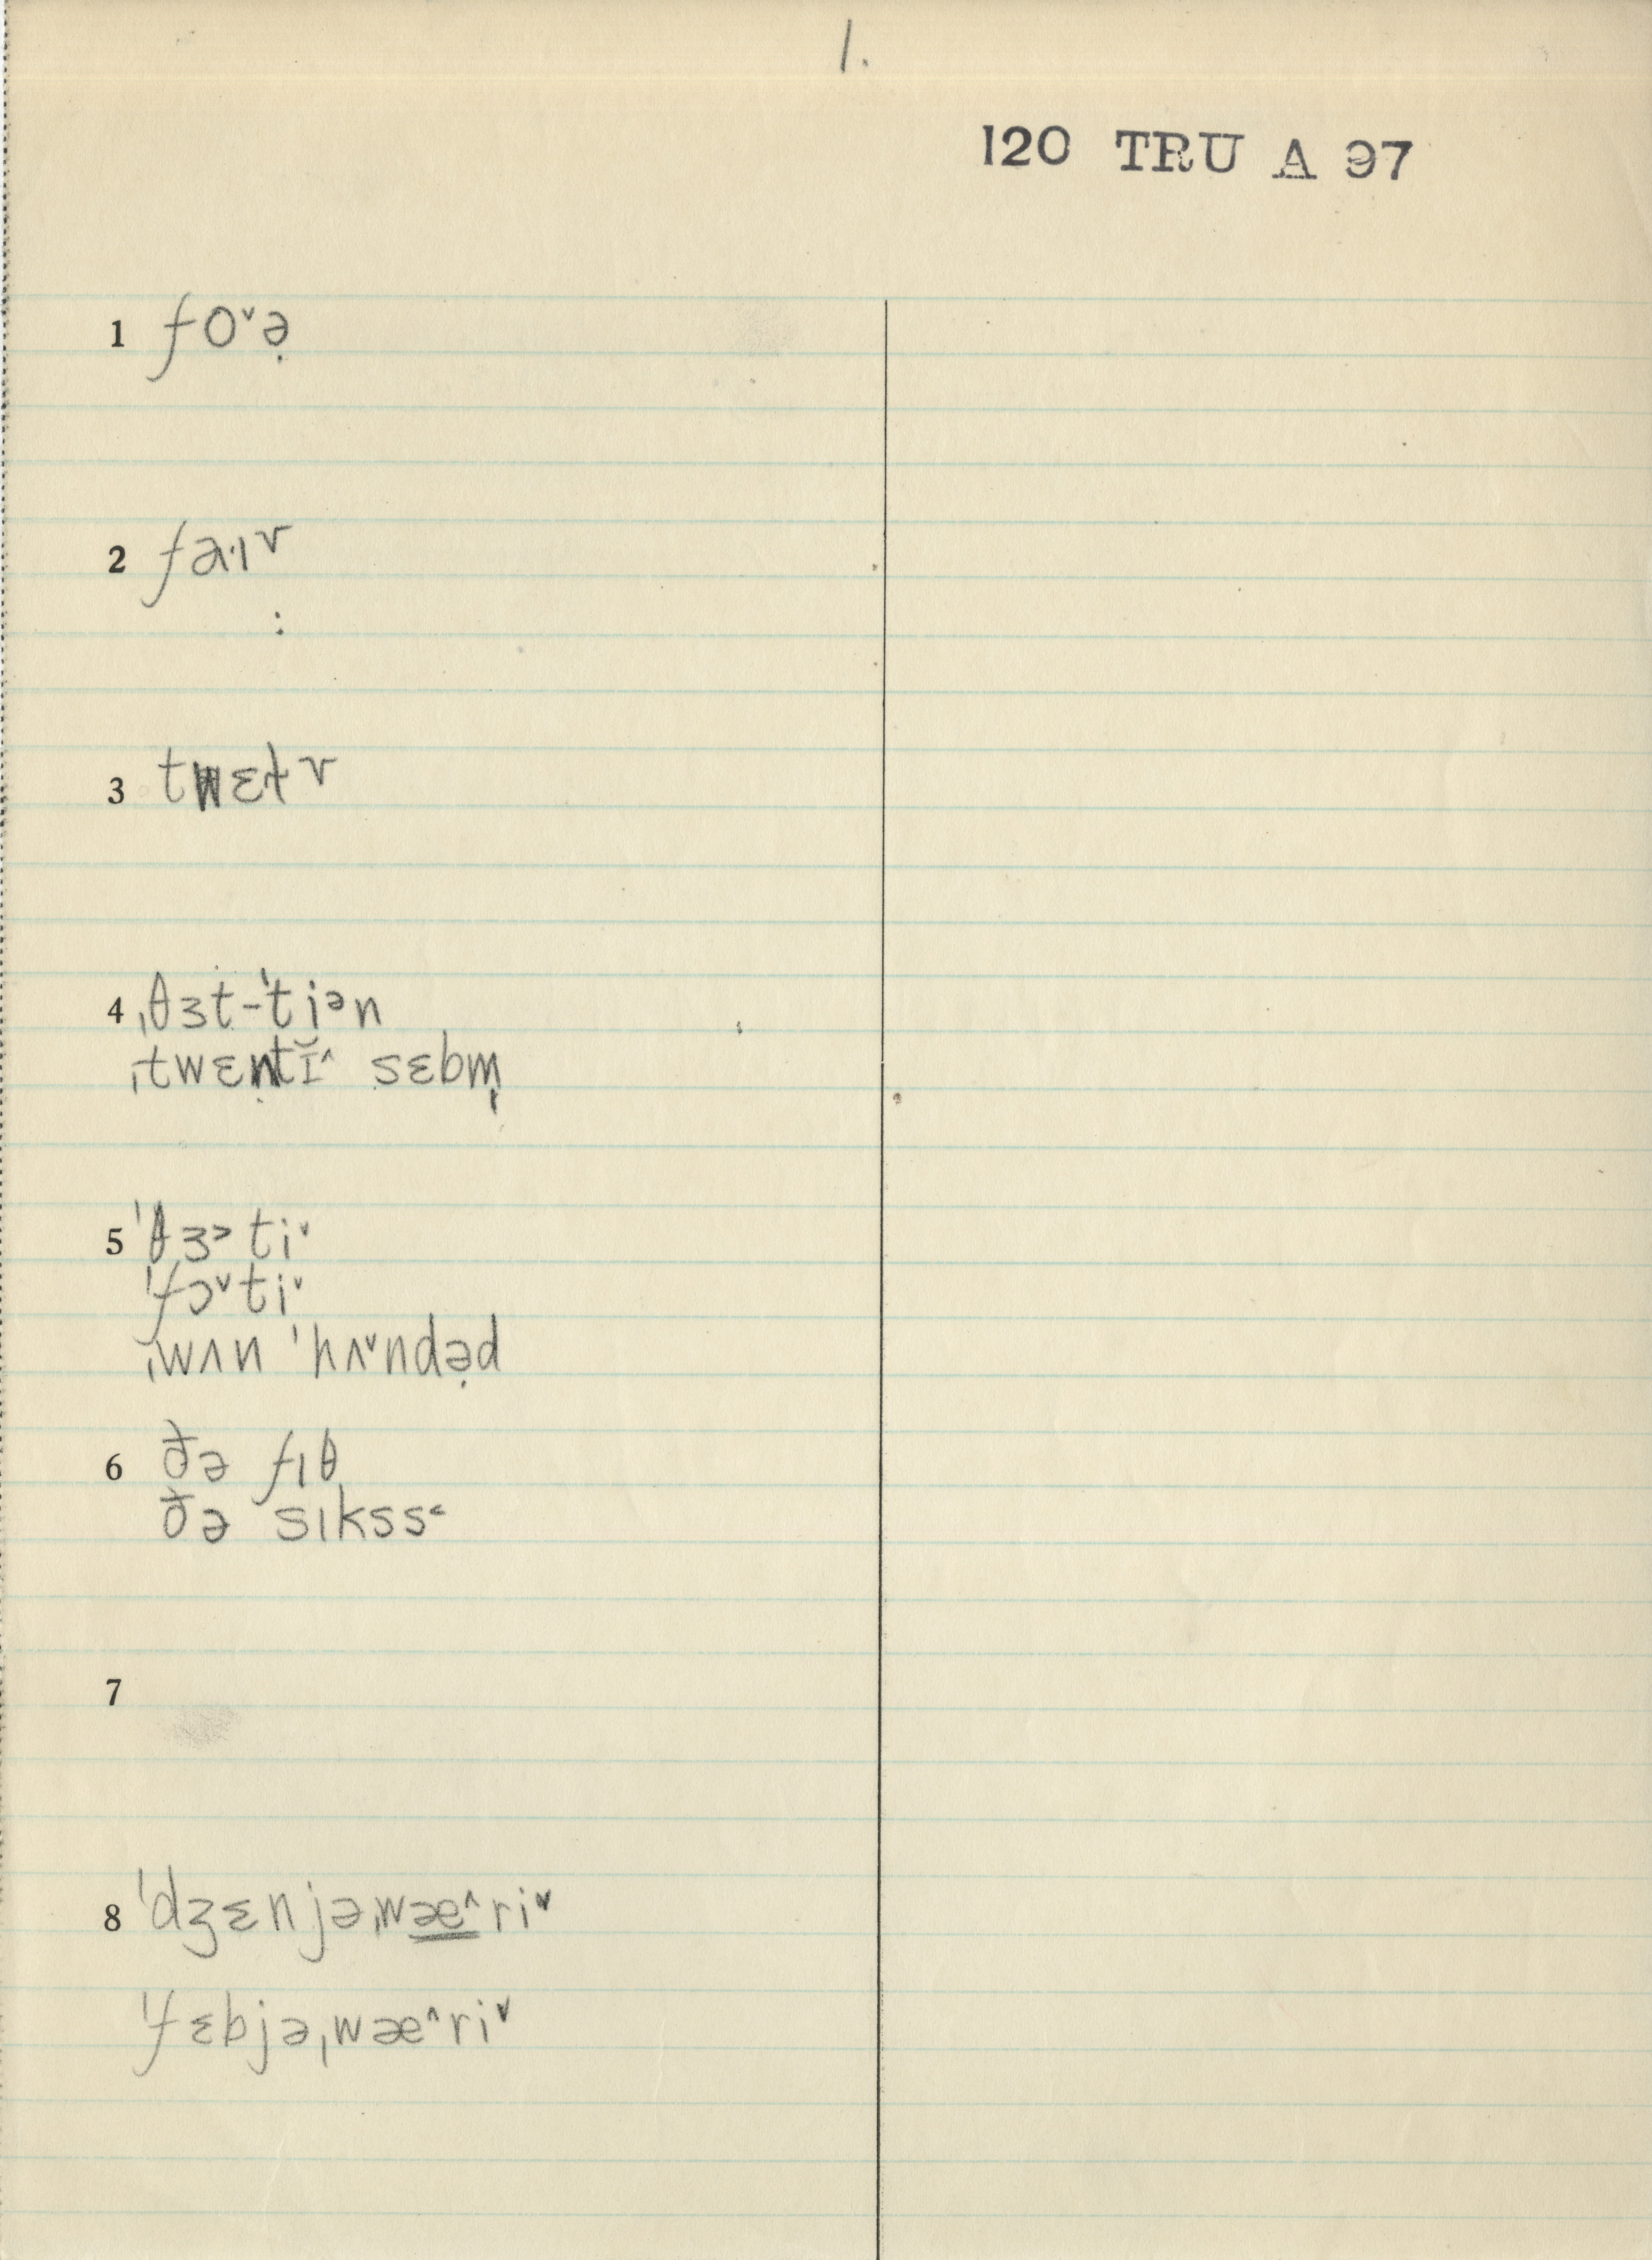 1.
120 TRU A 97
1 foˇə̣
2 fa·ɪv
3 twɛɫv
4 ˌθɜt-ˈtiᵊn
ˌtwɛntĭ^ sɛbm̩
5 ˈθɜ˃tiˇ
ˈfɔˇtiˇ
ˌwʌn ˈhʌˇndə̣d
6 ðə fɪθ
ðə sɪkssᶜ
7
8 ˈdʒɛnjəˌwæ̳^riˇ
ˈfɛbjəˌwæ^riˇ